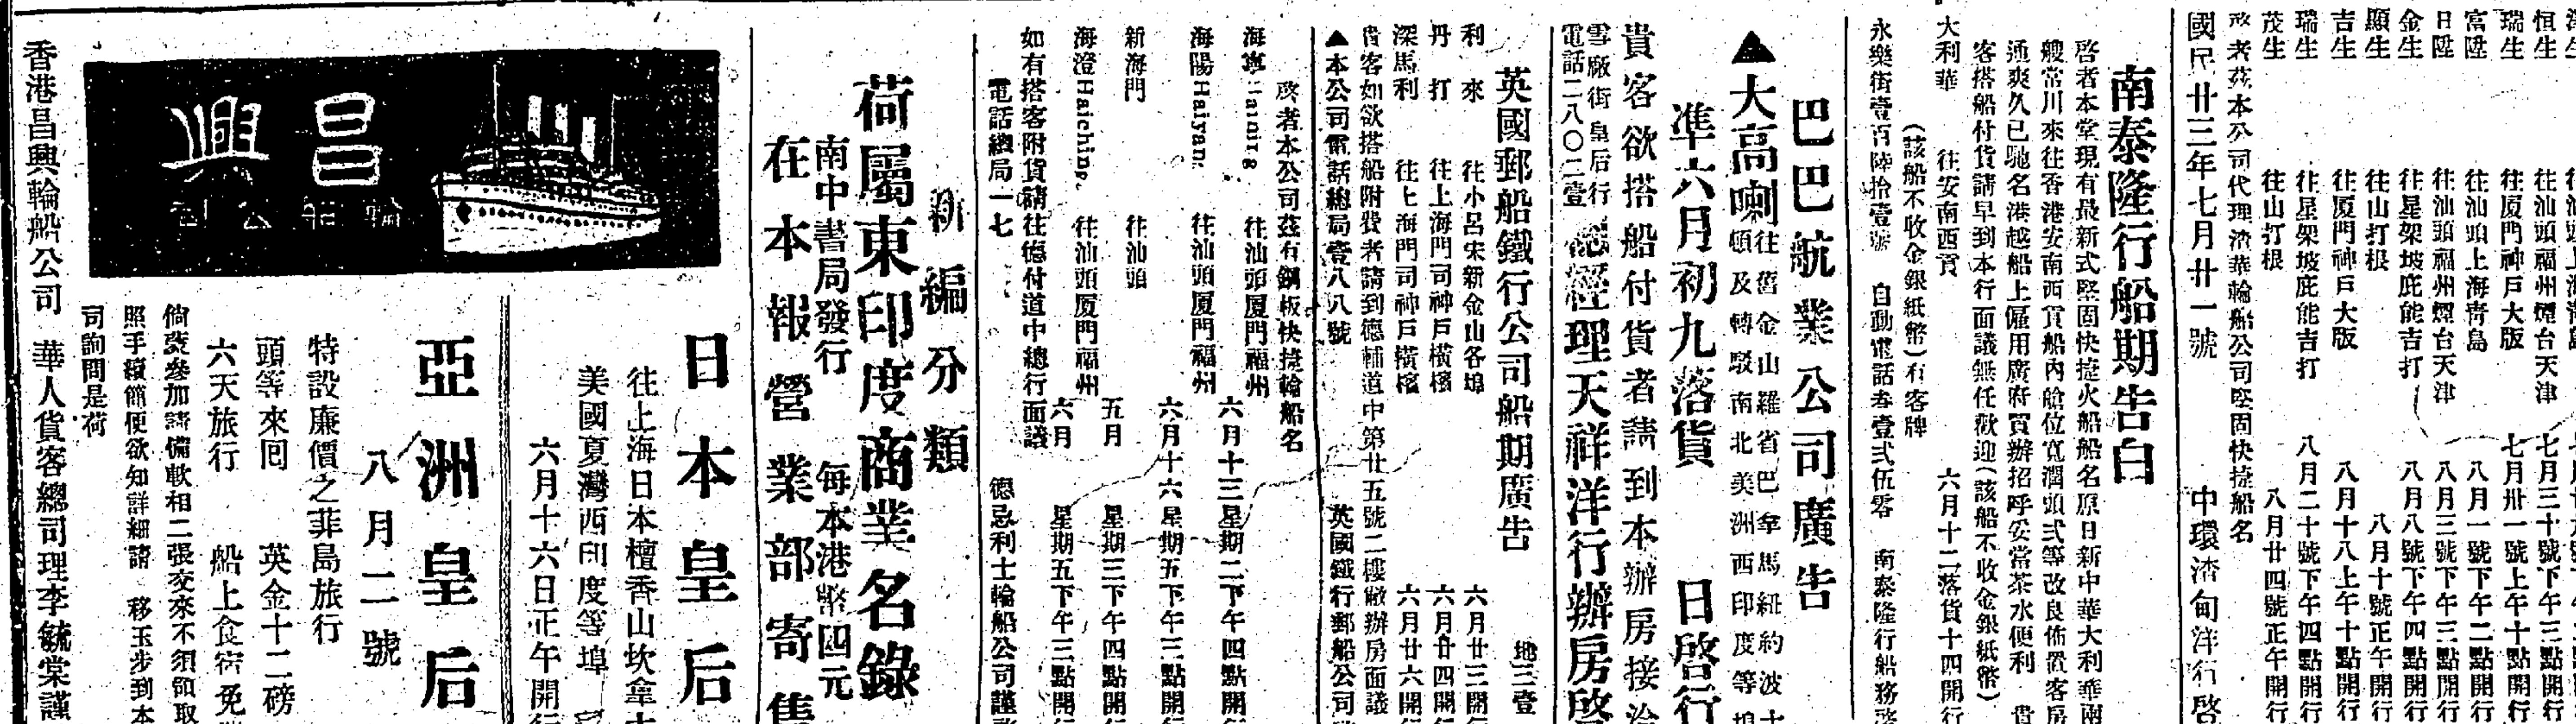 恒生　往汕頭福州煙台天津　七月三十號下午三點開行
瑞生　往厦門神戶大版　七月卅一號上午十點開行
富陞　往汕頭上海靑島　八月一號下午二點開行
日陞　往汕頭福州煙台天津　八月三號下午三點開行
金生　往星架坡庇能吉打　八月八號下午四點開行
顯生　往山打根　八月十號正午開行
吉生　往厦門神戶大版　八月十八上午十點開行
瑞生　往星架坡庇能吉打　八月二十號下午四點開行
茂生　往山打根　八月廿四號正午開行
啓者茲本公司代理渣華輪船公司堅固快捷船名
國民廿三年七月廿一號　中環渣甸洋行啓
南泰隆行船期告白
啓者本堂現有最新式堅固快捷火船船名原日新中華大利華南
艘常川來往香港安南西貢船內艙位寬濶頭式等改良佈置客房
通爽久已馳名港越船上僱用廣府買辦招呼妥當茶水便利　貴
客搭船付貨請早到本行面議無任歡迎(該船不收金銀紙幣)
大利華　往安南西貢　六月十二落貨十四開行
(該船不收金銀紙幣)有客牌
永樂街壹百陸拾壹號　自動電話叁壹弍伍零　南泰隆行船務啓
巴巴航業公司廣告
▲大高喇　往舊金山羅省巴拿馬紐約波士
頓及轉駁南北美洲西印度等埠
準六月初九落貨　日啓行
貴客欲搭船付貨者請到本辦房接洽
雪廠街皇后行
電話二八〇二壹
總經理天祥洋行辦房啓
英國郵船鐵行公司船期廣告
地三壹
利來　往小呂宋新金山各埠　六月廿三開行
丹打　往上海門司神戶橫濱　六月廿四開行
深馬利　往上海門司神戶橫濱　六月廿六開行
貴客如欲搭船附貨者請到德輔道中第廿五號二樓敝辦房面議
▲本公司電話總局壹八八號　英國鐵行郵船公司
啟者本公司茲有鋼板快捷輪船名
海寧Haining　往汕頭厦門福州　六月十三星期二下午四點開行
海陽Haiyan.　往汕頭厦門福州　六月十六星期五下午三點開行
新海門　往汕頭　五月　星期三下午四點開行
海澄Haiching.　往汕頭厦門福州　六月　星期五下午三點開行
如有搭客附貨請往德付道中總行面議
電話總局一七　德忌利士輪船公司謹啓
新編分類
荷屬東印度商業名錄
南中書局發行　每本港幣四元
在本報營業部寄售
昌興
輪船公司
日本皇后
往上海日本檀香山坎拿大
美國夏灣西印度等埠
六月十六日正午開行
亞洲皇后
八月二號
特設廉價之菲島旅行
頭等來囘　英金十二磅
六天旅行　船上食宿免
倘蒙參加請備軟相二張交來不須領取
照手續簡便欲知詳細請　移玉步到本
司詢問是荷
香港昌興輪船公司　華人貨客總司理李毓棠謹